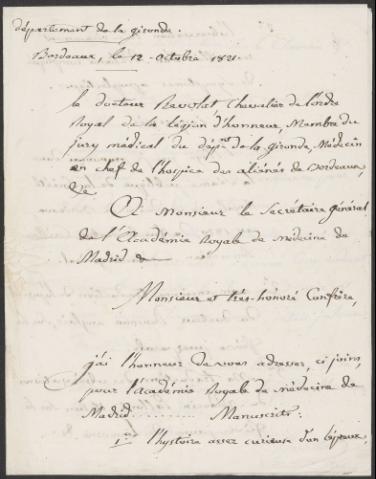 département de la gironde.
Bordeaux, le 12 octobre 1821.
le docteur Revolat, Chevalier de l'ordre
Royal de la légion d'honneur, Membre du
jury médical du dépt. de la gironde, Médecin
en chef de l'hospice des aliénés de Bordeaux,
&c
A Monsieur le Secrétaire général
de l'Académie Royale de médecine de
Madrid
Monsieur et très-honoré Confrère,
j'ai l'honneur de vous adresser, ci joins,
pour l'académie Royale de médecine de
Madrid......... Manuscrits.
1° l'hystoire assez curieuse d'un lépreux,